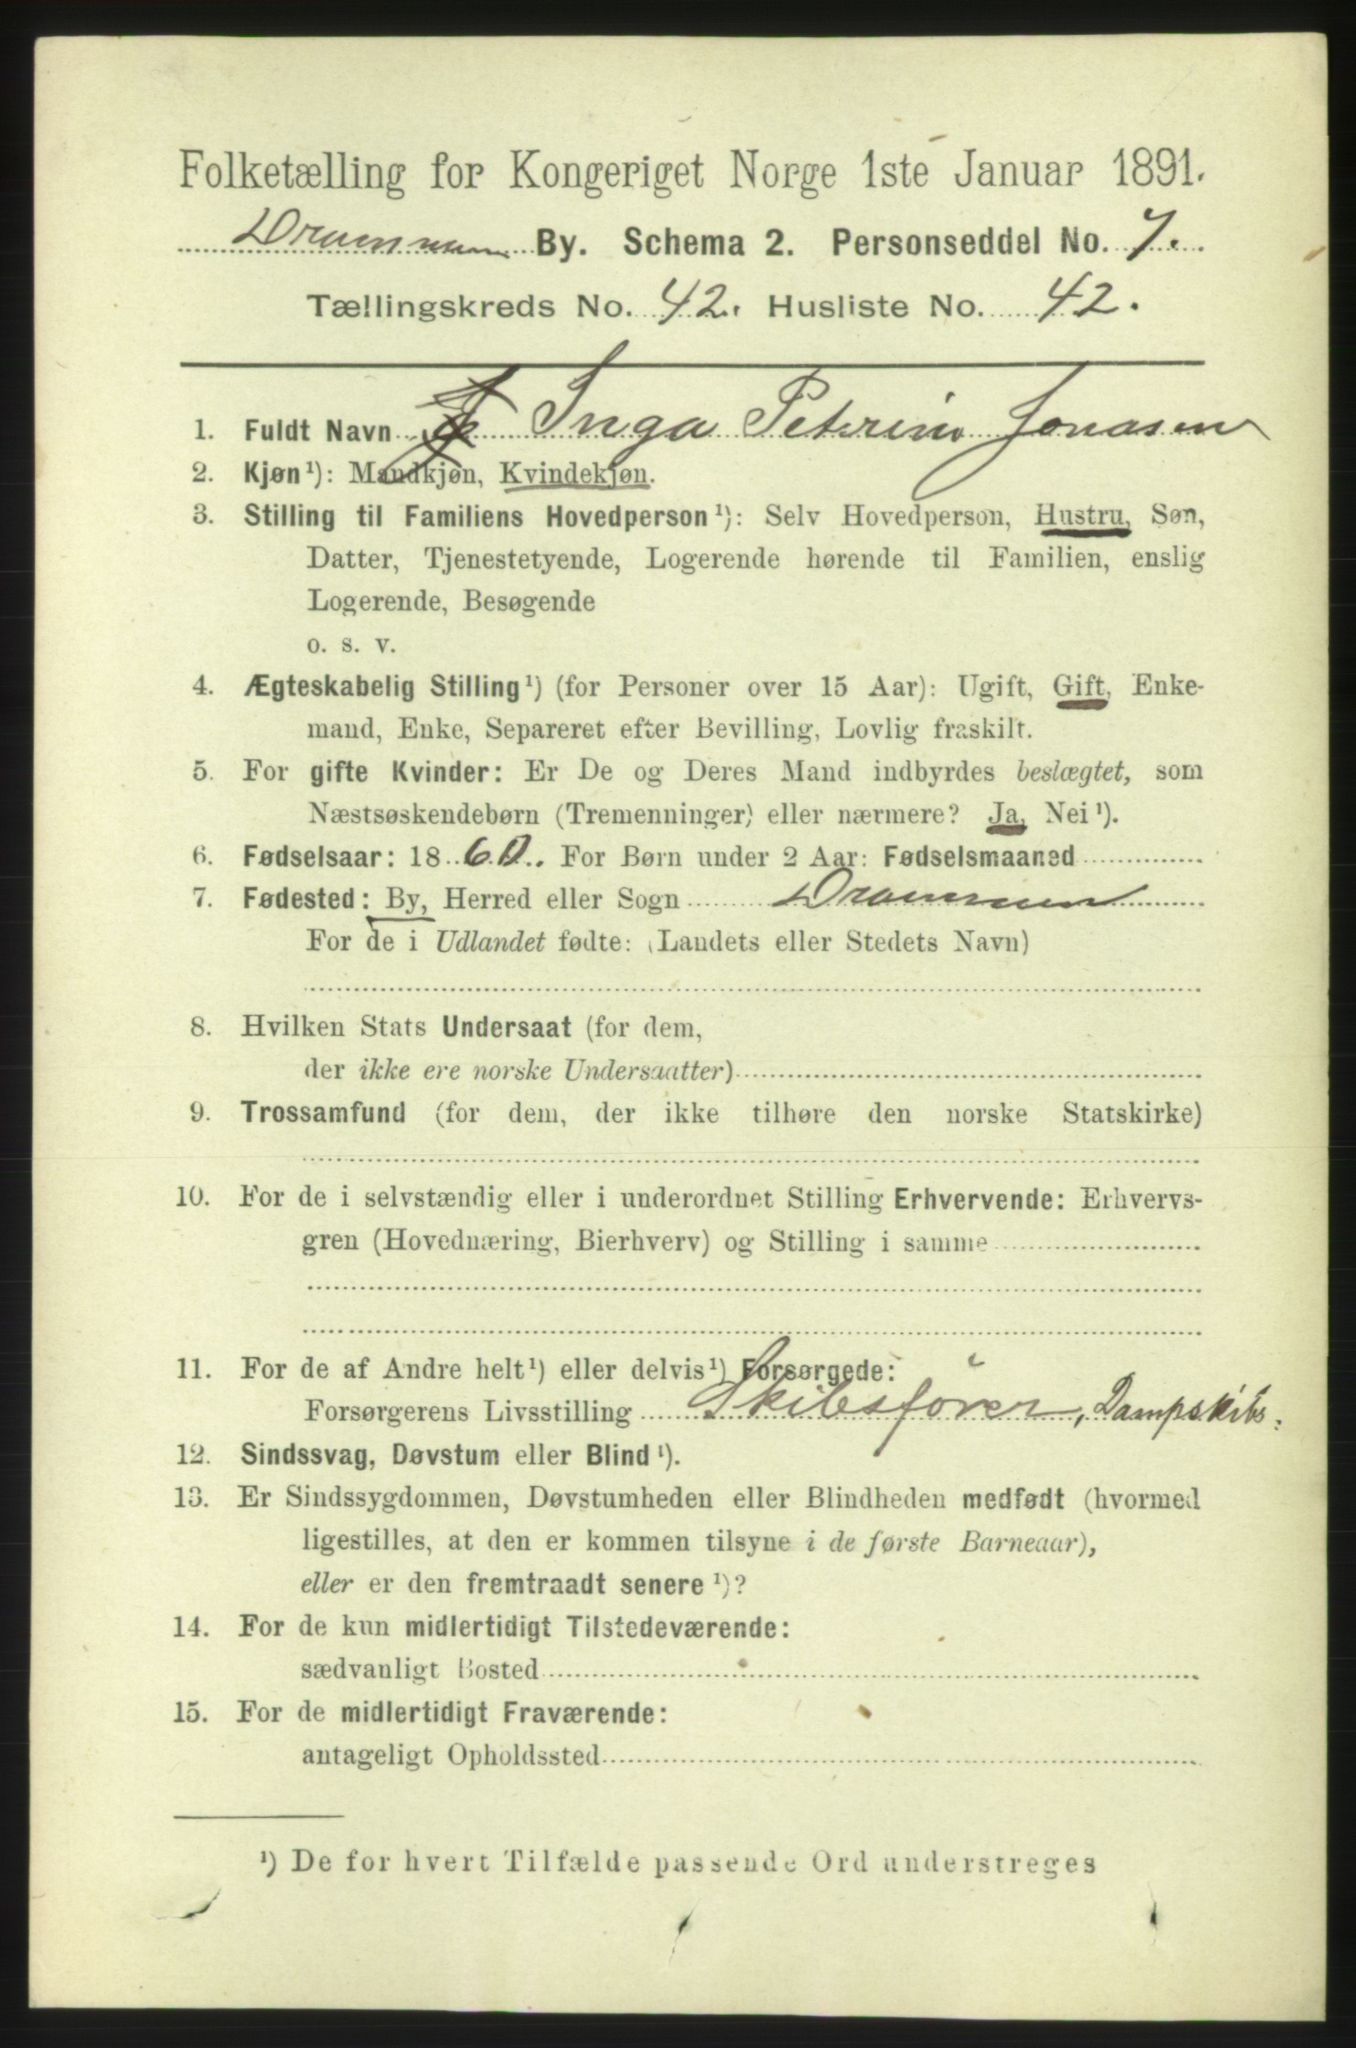 Folketælling for Kongeriget Norge 1ste Januar 1891.
Drammen By. Schema 2. Personseddel No. 7.
Tællingskreds No. 42. Husliste No. 42.
1. Fuldt Navn Inga Petrine Jonasen
2. Kjøn¹): Mandkjøn, Kvindekjøn.
3. Stilling til Familiens Hovedperson¹): Selv Hovedperson, Hustru, Søn,
Datter, Tjenestetyende, Logerende hørende til Familien, enslig
Logerende, Besøgende
o. s. v.
4. Ægteskabelig Stilling¹) (for Personer over 15 Aar): Ugift, Gift, Enke-
mand, Enke, Separeret efter Bevilling, Lovlig fraskilt.
5. For gifte Kvinder: Er De og Deres Mand indbyrdes beslægtet, som
Næstsøskendebørn (Tremenninger) eller nærmere? Ja, Nei¹).
6. Fødselsaar: 1860. For Børn under 2 Aar: Fødselsmaaned
7. Fødested: By, Herred eller Sogn Drammen
For de i Udlandet fødte: (Landets eller Stedets Navn)
8. Hvilken Stats Undersaat (for dem,
der ikke ere norske Undersaatter)
9. Trossamfund (for dem, der ikke tilhøre den norske Statskirke)
10. For de i selvstændig eller i underordnet Stilling Erhvervende: Erhvervs-
gren (Hovednæring, Bierhverv) og Stilling i samme
11. For de af Andre helt¹) eller delvis¹) Forsørgede:
Forsørgerens Livsstilling Skibsförer, Dampskibs.
12. Sindssvag, Døvstum eller Blind¹).
13. Er Sindssygdommen, Døvstumheden eller Blindheden medfødt (hvormed
ligestilles, at den er kommen tilsyne i de første Barneaar),
eller er den fremtraadt senere¹)?
14. For de kun midlertidigt Tilstedeværende:
sædvanligt Bosted
15. For de midlertidigt Fraværende:
antageligt Opholdssted
¹) De for hvert Tilfælde passende Ord understreges